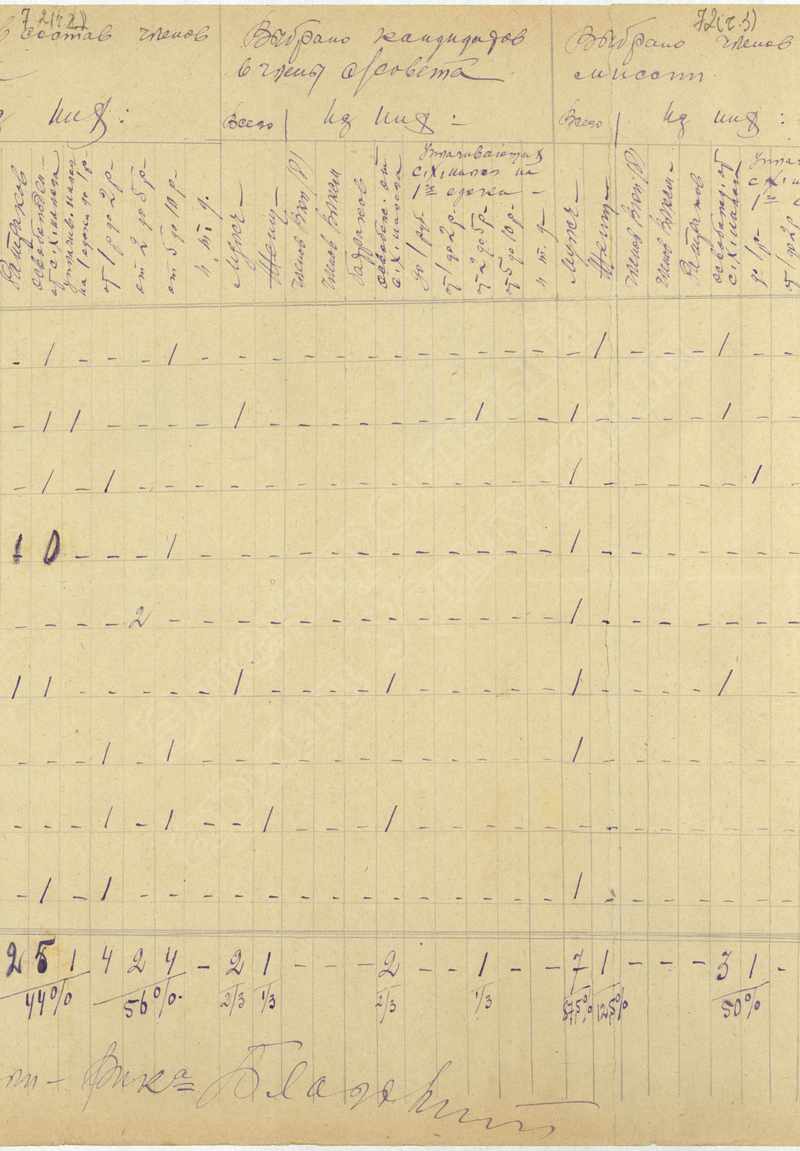 72(ч.2) 72(ч.3)
в состав членов Выбрано кандидатов Выбрано членов
в члены с/совета миссии
из них: Всего из них:- Всего из них:
Батраков
от 1 р до 2 р-
от 2 до 5 р-
от 5 до 10 р-
и т. д.
Мужч- Женщ- членов ВКП(б) членов ВЛКСМ батраков освобожд. от с.х. налога
уплачивающих
с.х. налог на
1го едока-
до 1 руб. от 1 до 2 р- от 2 до 5 р- от 5 до 10 р- и т. д-
Мужч- Женщ- членов ВКП(б) членов ВЛКСМ- Батраков освобожд. от с.х. налога
до 1 р- от 1 до 2 р
- 1 - - - 1 - - - - - - - - - - - - - 1 - - - 1 - -
- 1 1 - - - - 1 - - - - - - - 1 - - 1 - - - - 1 - -
- 1 - 1 - - - - - - - - - - - - - - 1 - - - - - 1 -
1 0 - - - 1 - - - - - - - - - - - - 1 - - - - - - -
- - - - 2 - - - - - - - - - - - - - 1 - - - - - - -
1 1 - - - - - 1 - - - - 1 - - - - - 1 - - - - 1 - -
- - - 1 - 1 - - - - - - - - - - - - 1 - - - - - - -
- - - 1 - 1 - - 1 - - - 1 - - - - - - - - - - - - -
- 1 - 1 - - - - - - - - - - - - - - 1 - - - - - - -
2 5 1 4 2 4 - 2 1 - - - 2 - - 1 - - 7 1 - - - 3 1 -
44% 56%- 2/3 1/3 2/3 1/3 87,5% 12,5% 50%